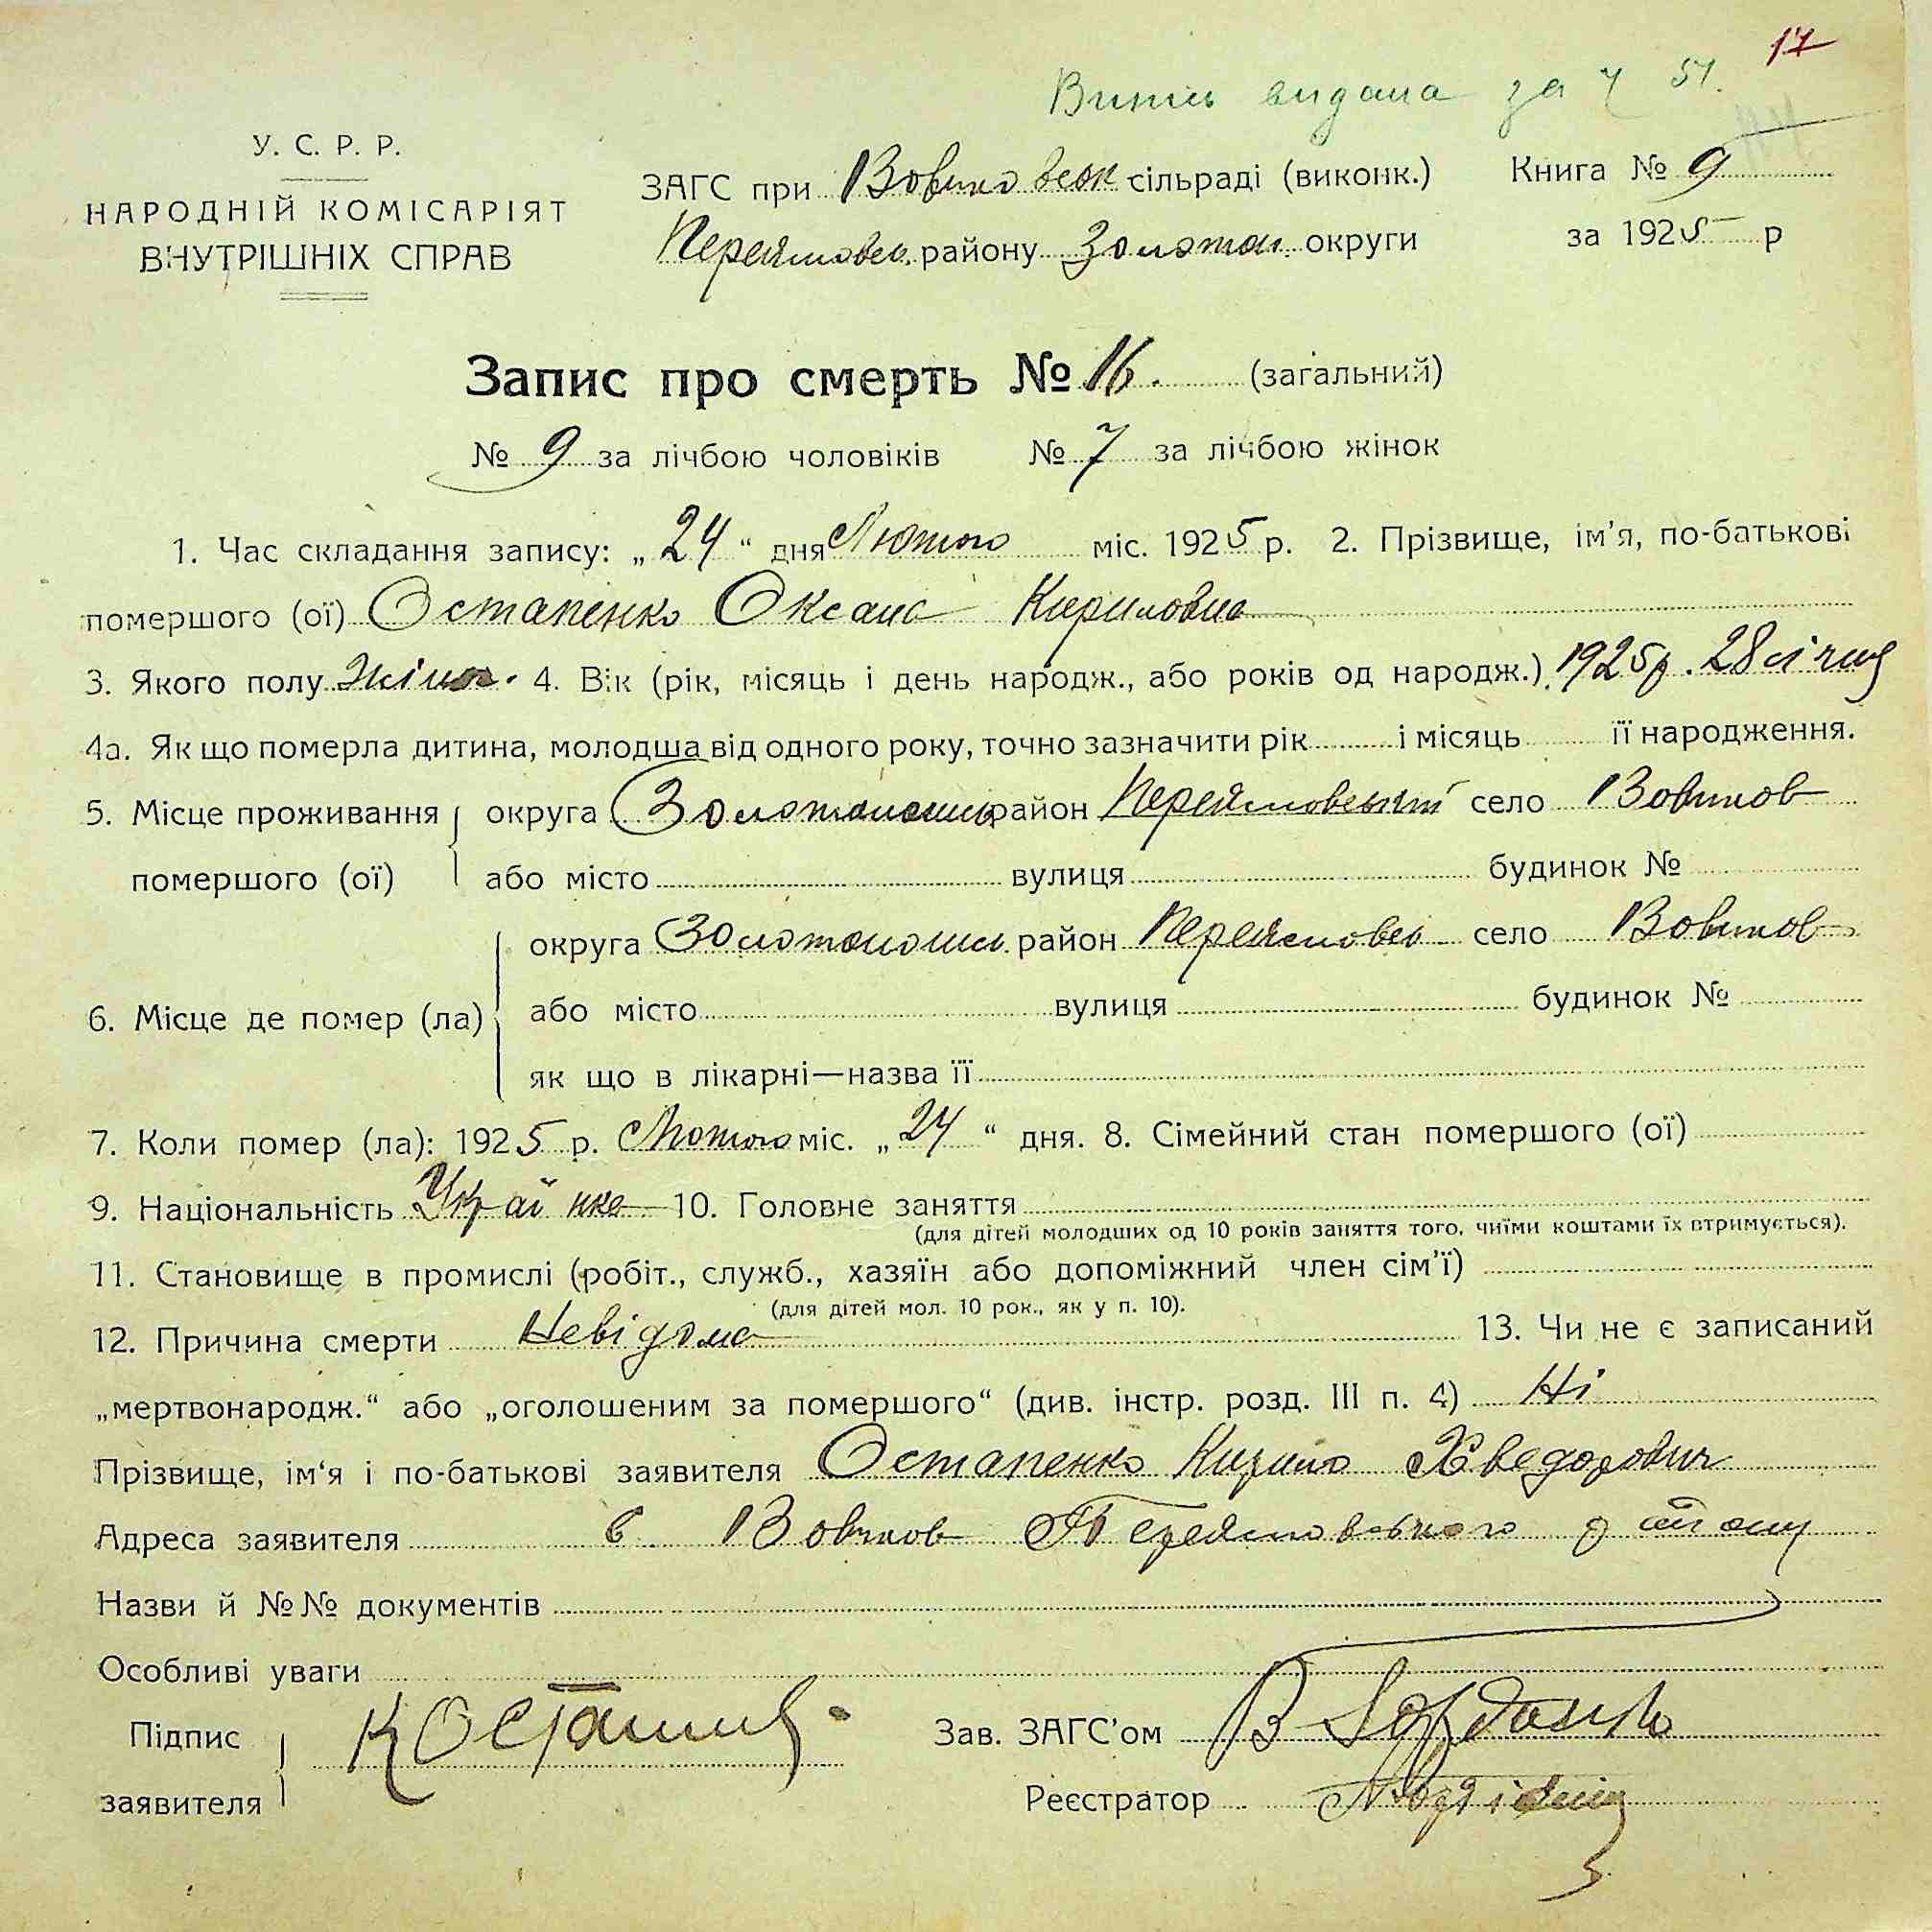 17
видана за 51.
У. С. Р. Р.
НАРОДНІЙ КОМІСАРІЯТ
ВНУТРІШНІХ СПРАВ
ЗАГС при Вовчковськ сільраді (виконк.)
Книга № 9
Переяславс. району Золотон. округи
за 1925 р
Запис про смерть № 16. (загальний)
№ 9 за лічбою чоловіків № 7 за лічбою жінок
1. Час складання запису: „24“ дня Лютого міс. 1925 р. 2. Прізвище, ім'я, по-батькові
помершого (ої) Остапенко Оксана Кириловна
3. Якого полу жіноч. 4. Вік (рік, місяць і день народж., або років од народж.) 1925 р. 28 січня
4а. Як що померла дитина, молодша від одного року, точно зазначити рік і місяць її народження.
5. Місце проживання округа Золотоношськ район Переяславський село Вовчков
помершого (ої) або місто вулиця будинок №
округа Золотоношс. район Переяславсь село Вовчков
6. Місце де помер (ла) або місто вулиця будинок №
як що в лікарні—назва її
7. Коли помер (ла): 1925 р. Лютого міс. „24“ дня. 8. Сімейний стан помершого (ої)
9. Національність Українка 10. Головне заняття
(для дітей молодших од 10 років заняття того, чиїми коштами їх втримується).
11. Становище в промислі (робіт., служб., хазяїн або допоміжний член сім'ї)
(для дітей мол. 10 рок., як у п. 10).
12. Причина смерти Невідома 13. Чи не є записаний
„мертвонародж.“ або „оголошеним за помершого“ (див. інстр. розд. III п. 4) Ні
Прізвище, ім'я і по-батькові заявителя Остапенко Кирило Хведорович
Адреса заявителя с Вовчков Переяславського району
Назви й №№ документів
Особливі уваги
Підпис
заявителя
К Остап
Зав. ЗАГС'ом В
Реєстратор